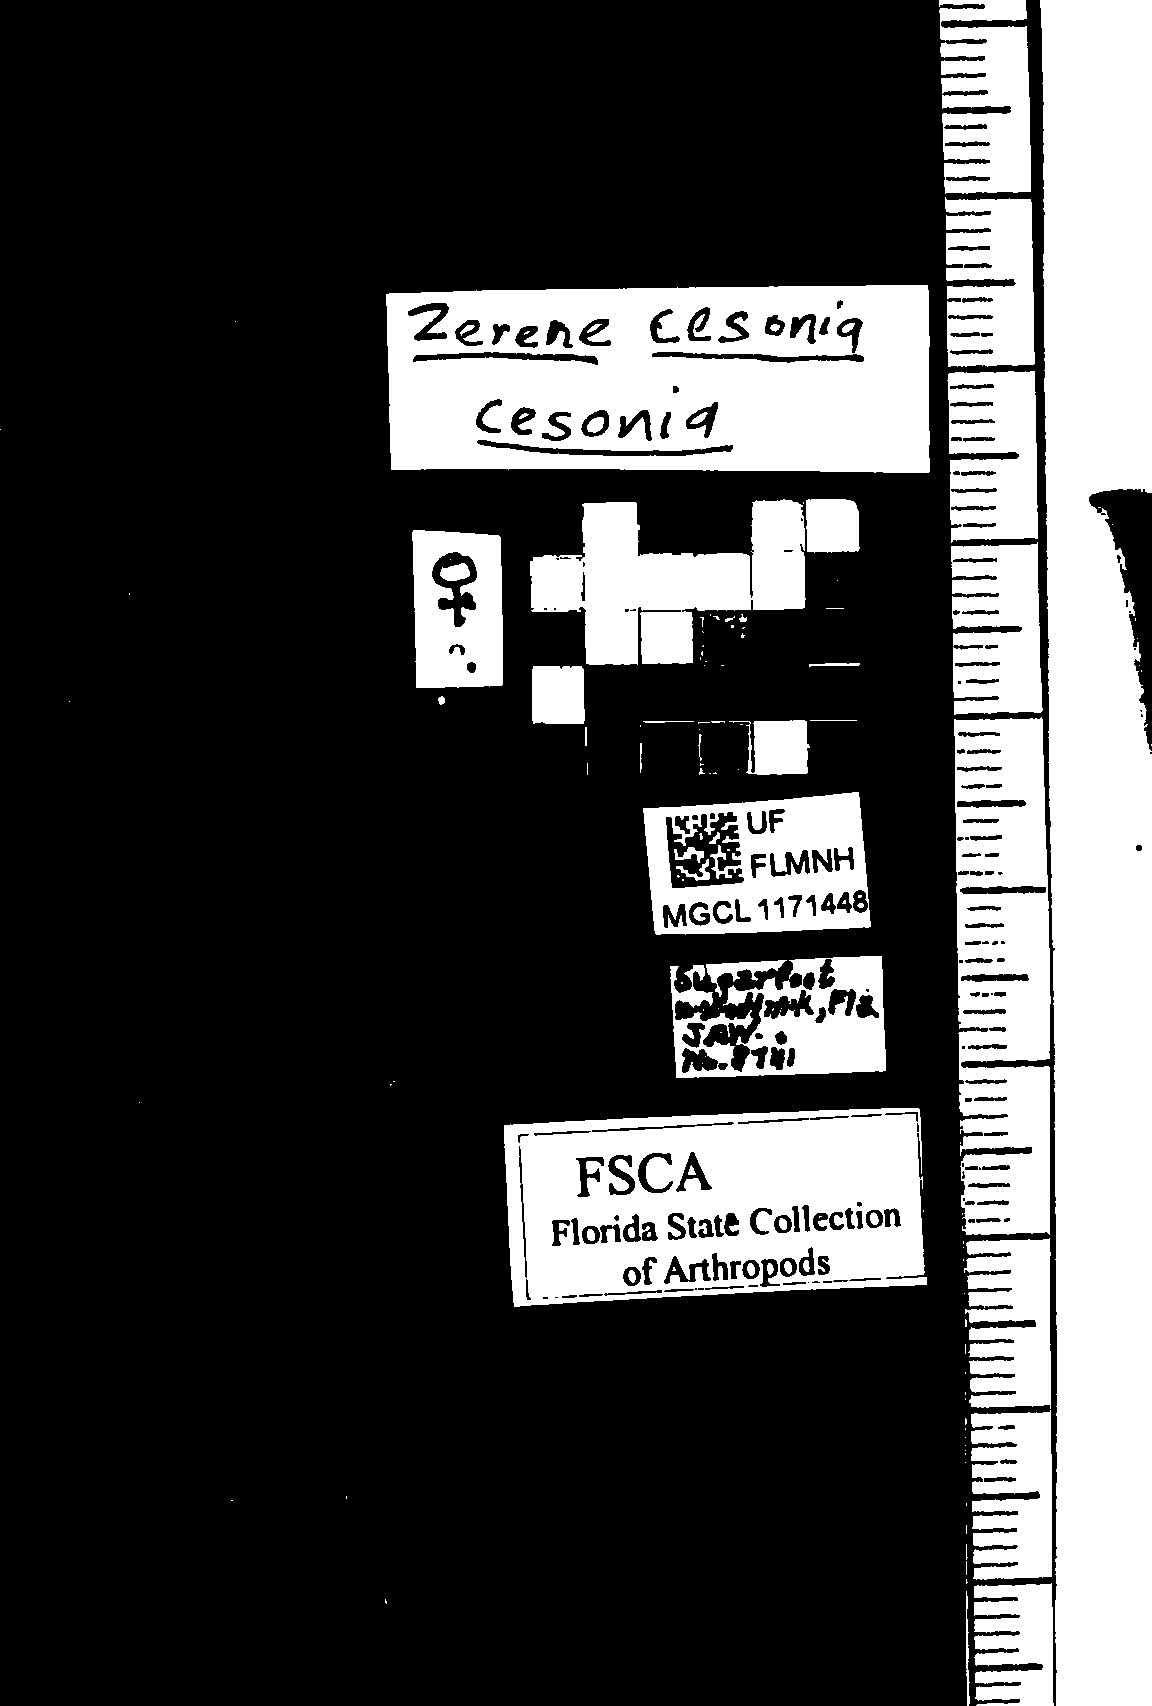 Zerene cesonia
cesonia
♀
UF
FLMNH
MGCL 1171448
Sugarfoot
Fla
JAW.
No. 8741
FSCA
Florida State Collection
of Arthropods